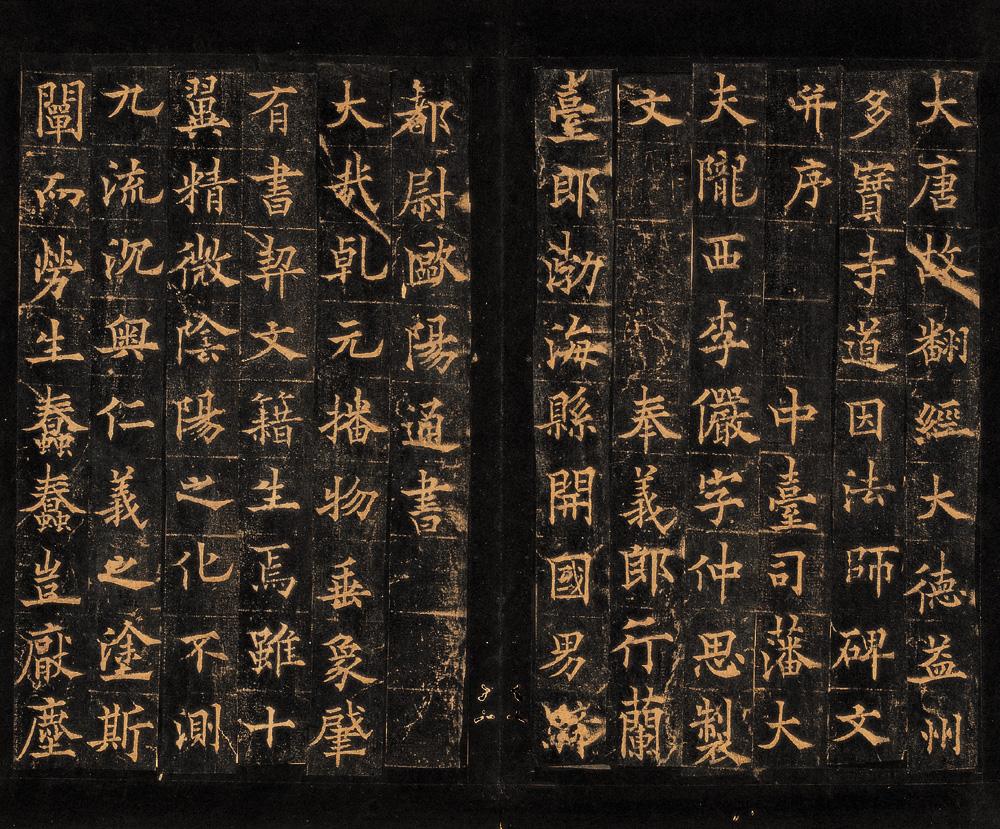 大唐故翻經大德益州
多寶寺道因法師碑文
并序　中臺司藩大
夫隴西李儼字仲思製
文　奉義郎行蘭
臺郎渤海縣開國男
都尉歐陽通書
大哉乹元播物垂象肇
有書契文籍生焉雖十
翼精微陰陽之化不測
九流沉奧仁義之塗斯
闡而勞生蠢蠢豈厭塵